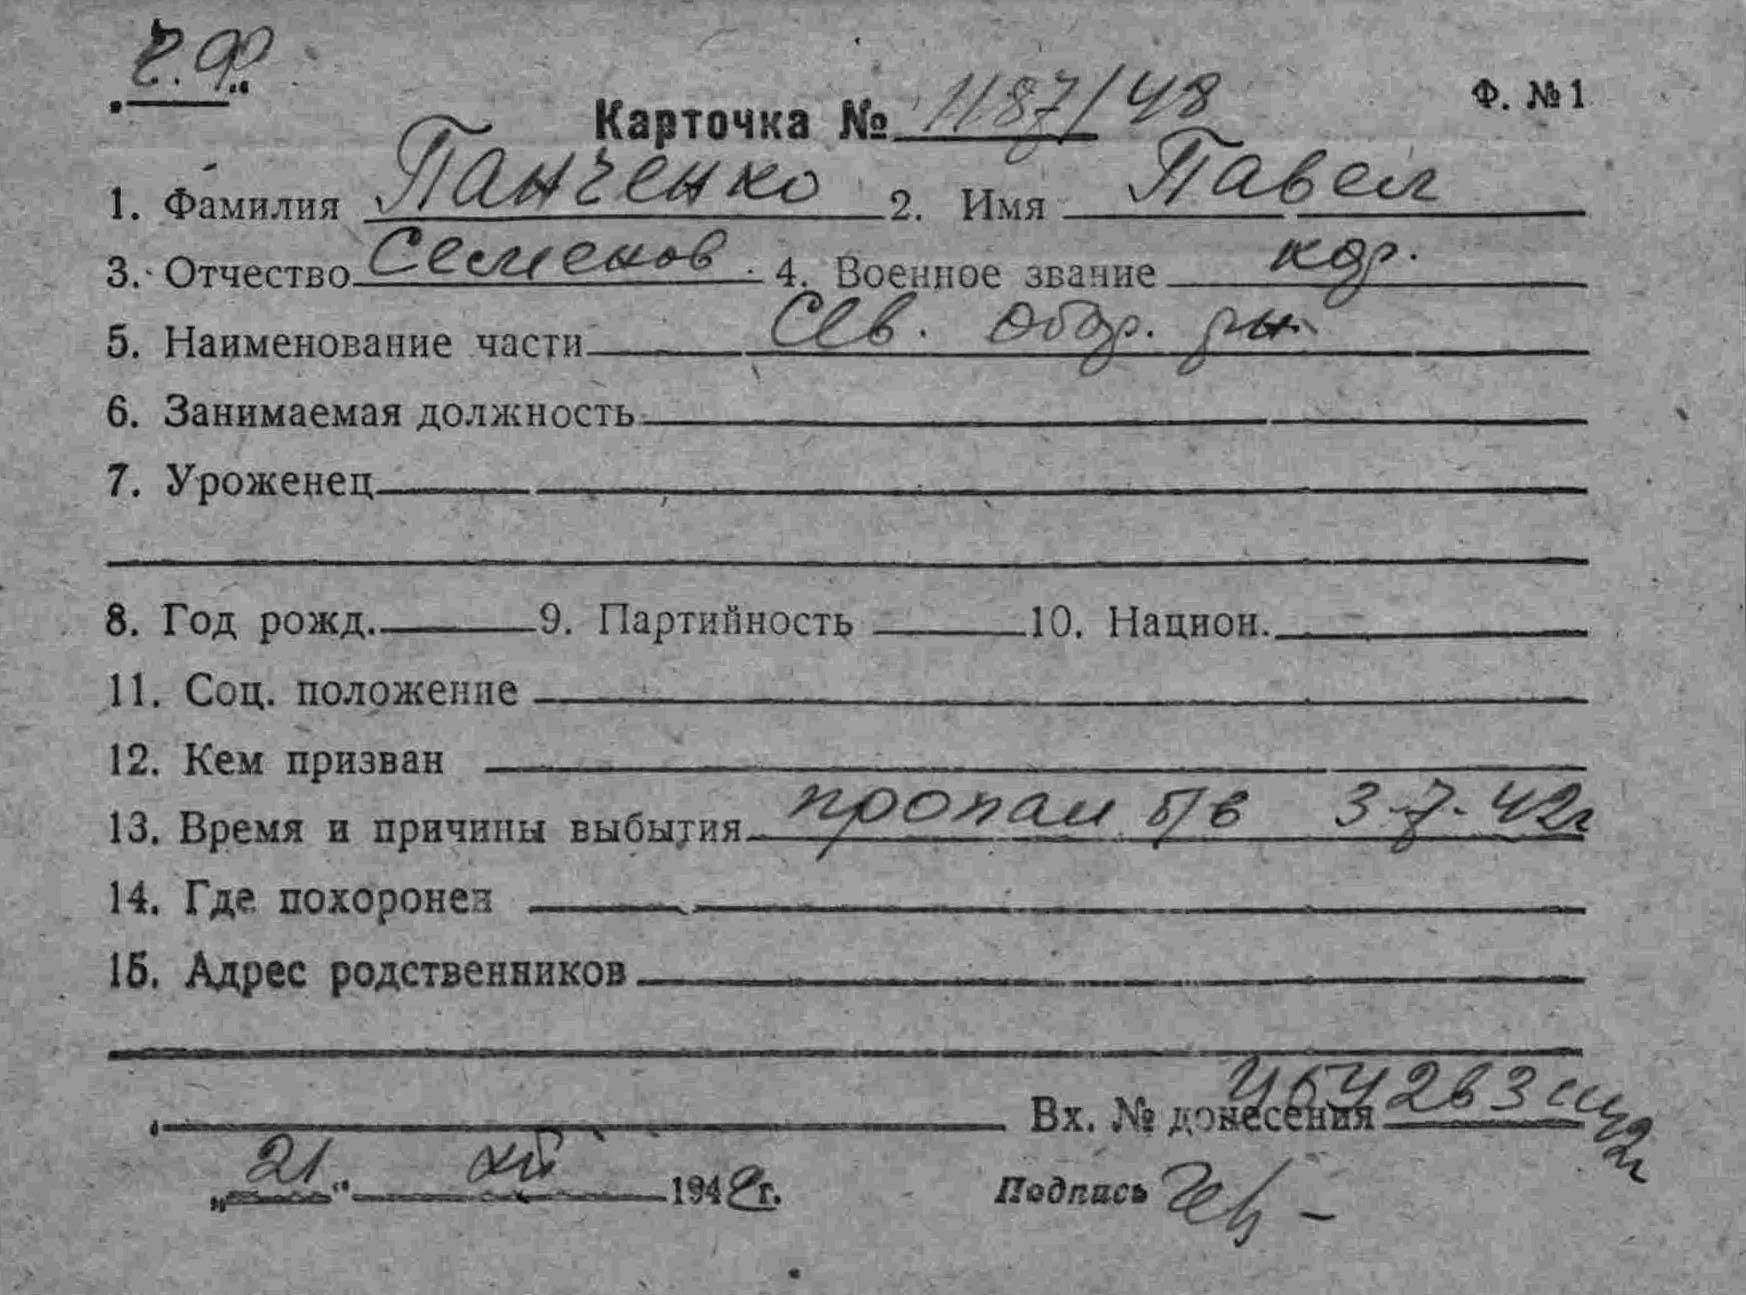 Ч.Ф.
Ф. №1
Карточка № 1187/48
1. Фамилия Панченко 2. Имя Павел
3. Отчество Семенов. 4. Военное звание кр.
5. Наименование части Сев. обор. рн.
6. Занимаемая должность
7. Уроженец
8. Год рожд. 9. Партийность 10. Национ.
11. Соц. положение
12. Кем призван
13. Время и причины выбытия пропал б/в 3-7-42г
14. Где похоронен
15. Адрес родственников
Вх. № донесения
„21“ XII 194 г. Подпись